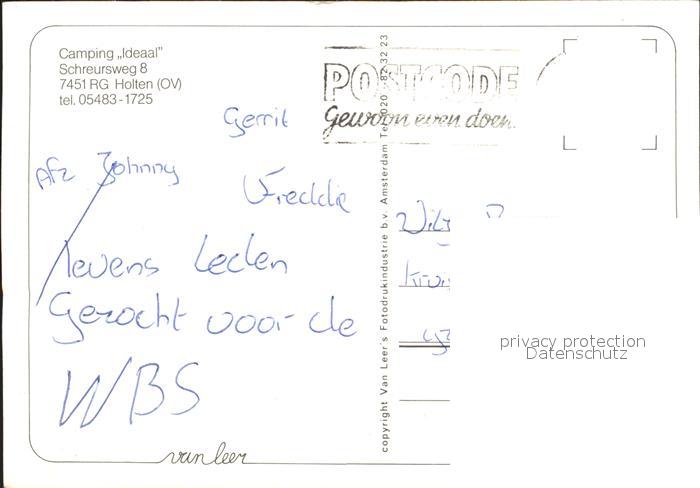 Camping „Ideaal"
Schreursweg 8
7451 RG Holten (OV)
tel. 05483-1725
POSTCODE
Gewoon even doen.
Gerrit
Afz Johnny
Freddie
levens Leden
Gezocht voor de
WBS
van leer
copyright Van Leer's Fotodrukindustrie b.v. Amsterdam Tel. 020 - 82 32 23
privacy protection
Datenschutz